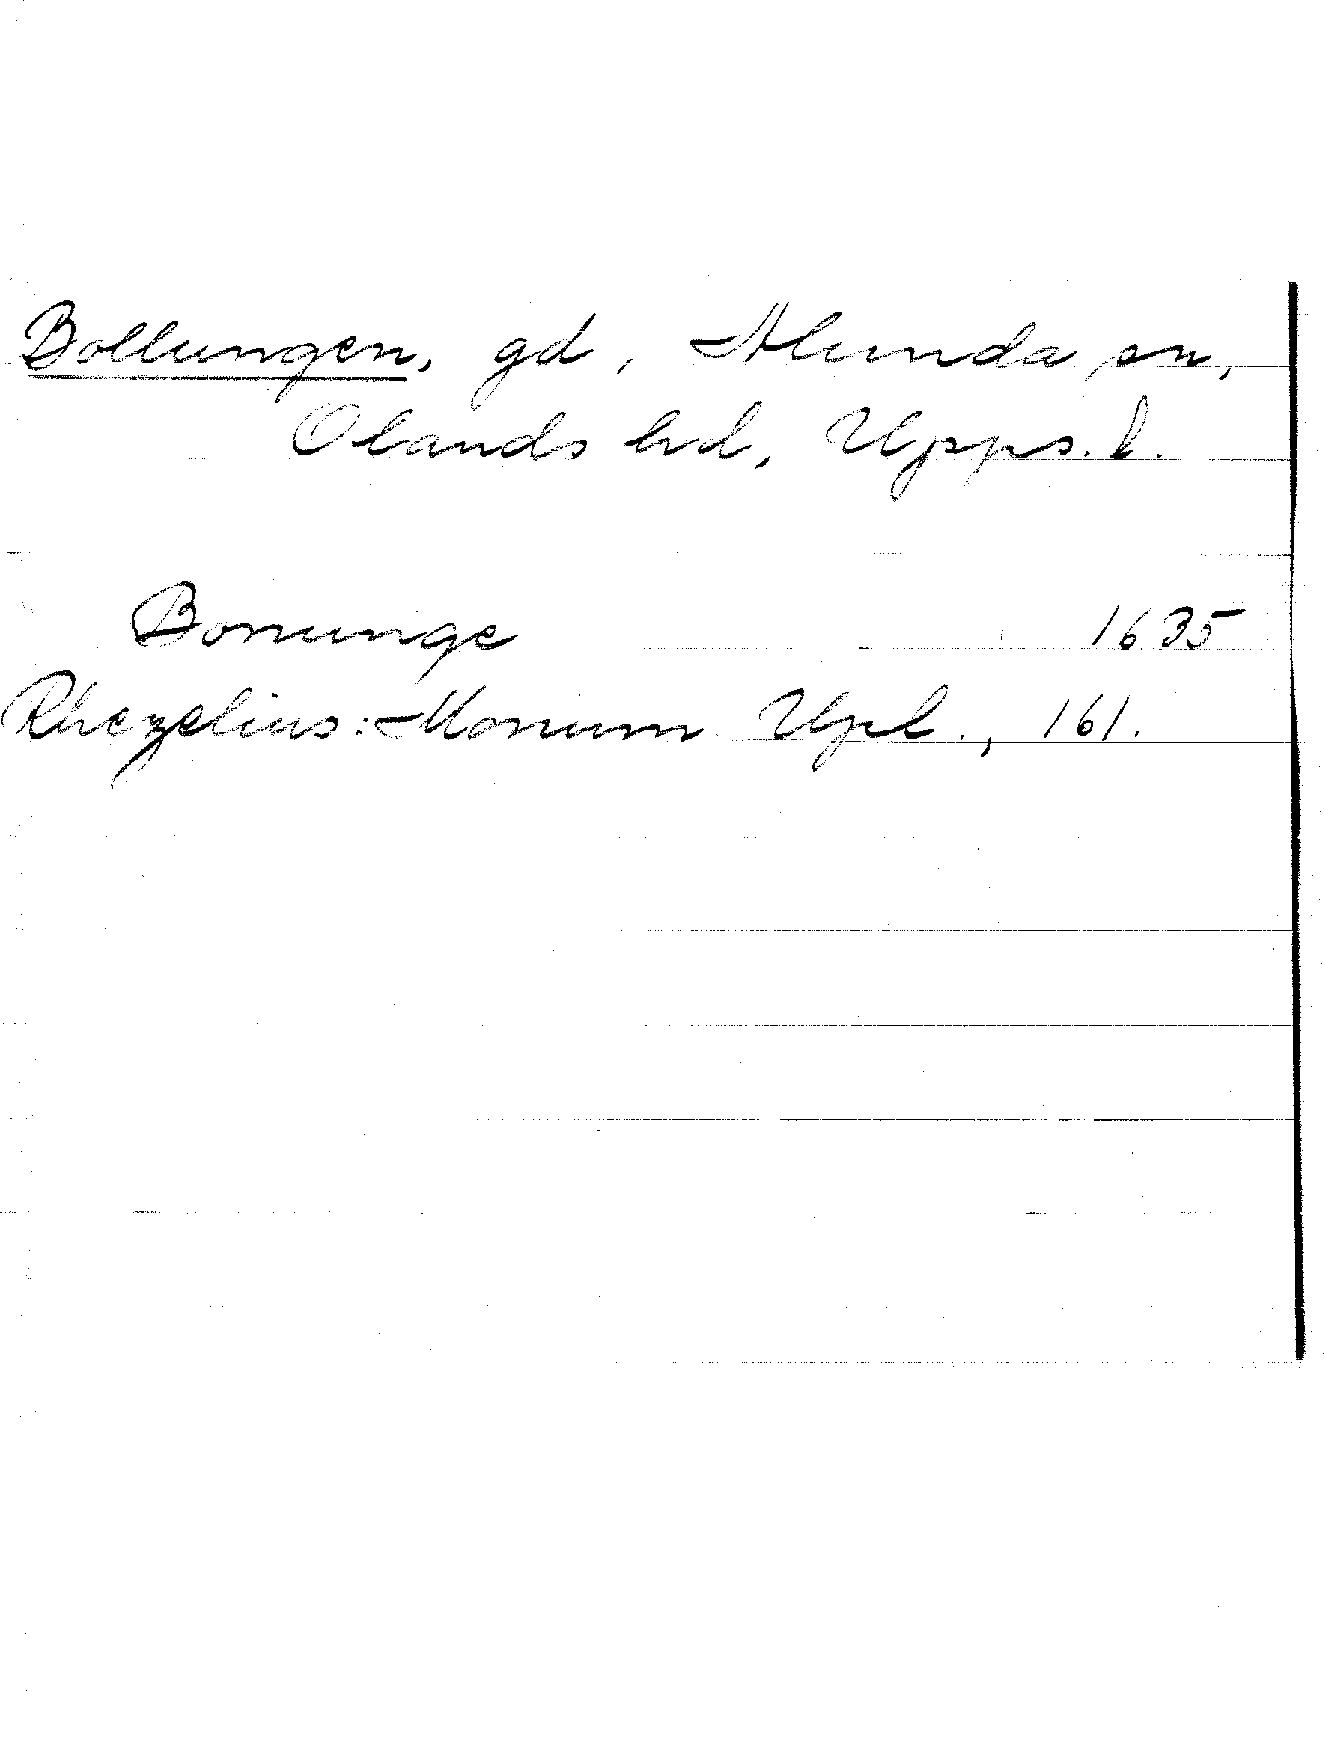 Bollungen, gd, Alunda sn,
Olands hd, Upps. l.
Bonunge 1635
Rhezelius: Monum Upl., 161.